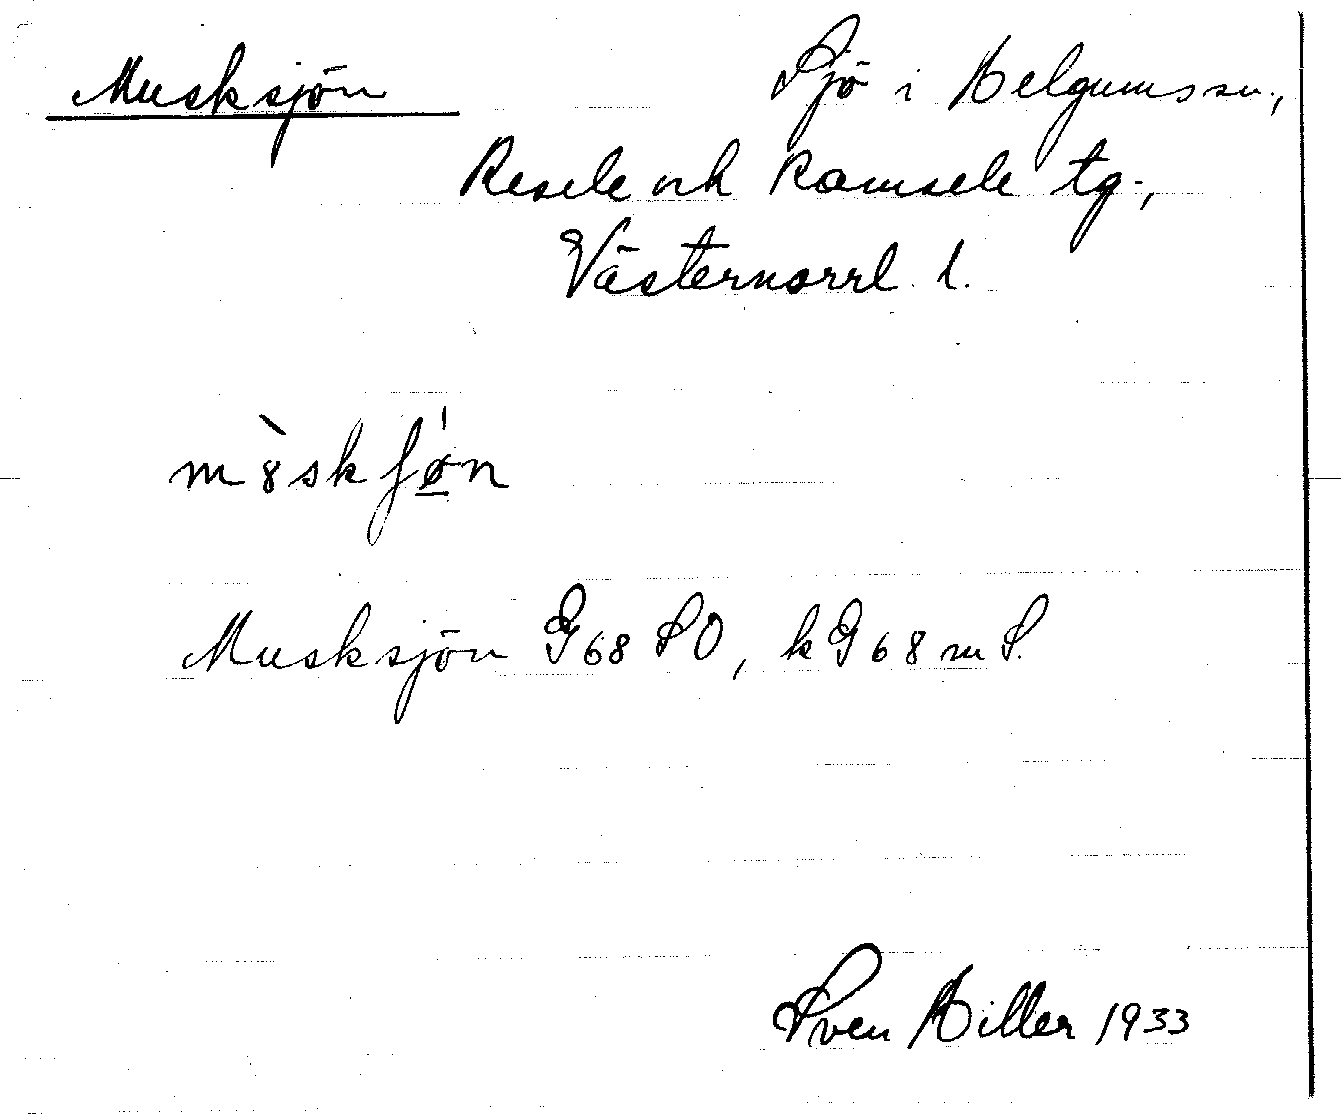 Musksjön
Sjö i Helgums sn.,
Resele och Ramsele tg.,
Västernorrl. l.
Musksjön G68 SO, kG68 m S.
Sven Hiller 1933